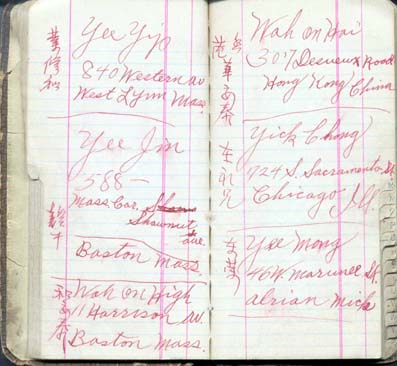 Yee Yip
840 Western av
West Lynn Mass.
Yee Jim
588 —
Mass. Cor.
Shawmut
ave.
Boston Mass.
Wah On High
11 Harrison av.
Boston Mass.
Wah On Hai
307 Desveux Road
Hong Kong China
華安泰
Yick Chong
724 S. Sacramento St
Chicago Ill.
Yee Mong
46 W. Maumee St.
adrian Mich